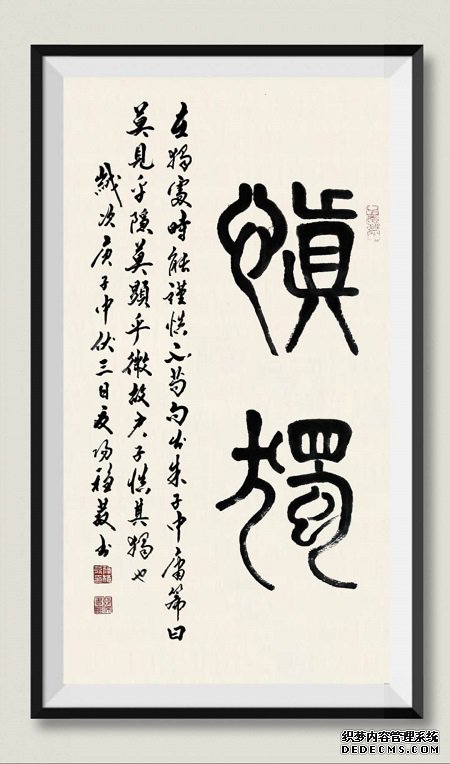 慎獨
在獨處時能謹慎不苟句出朱子中庸篇曰
莫見乎隱莫顯乎微故君子慎其獨也
歲次庚子中伏三日夏书
织梦内容管理系统
DEDECMS.COM